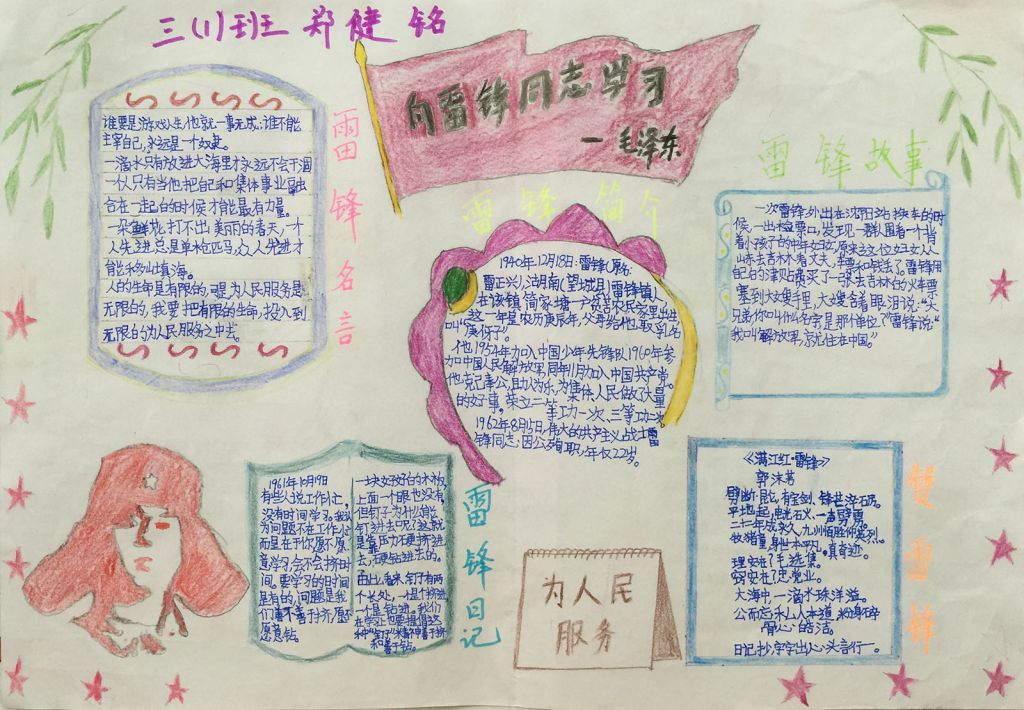 三(1)班 郑健铭
向雷锋同志学习
—毛泽东
雷锋名言
谁要是游戏人生,他就一事无成;谁不能
主宰自己,永远是一个奴隶。
一滴水只有放进大海里才永远不会干涸
一个人只有当他把自己和集体事业融
合在一起的时候才能最有力量。
一朵鲜花打不出美丽的春天,一个
人先进总是单枪匹马,众人先进才
能移山填海。
人的生命是有限的,可是为人民服务是
无限的,我要把有限的生命,投入到
无限的为人民服务之中去。
雷锋简介
1940年12月18日:雷锋(原名:
雷正兴)湖南(望城县)雷锋镇人,
在该镇简家塘一户贫苦农民家里出生
这一年是农历庚辰年,父母给他取乳名
叫“庚伢子”
他1954年加入中国少年先锋队1960年参
加中国人民解放军,同年11月加入中国共产党。
他克己奉公,且助人为乐,为集体、人民做了大量
的好事,荣立二等功一次、三等功二次
1962年8月15日,伟大的共产主义战士雷
锋同志,因公殉职,年仅22岁。
雷锋故事
一次雷锋外出在沈阳站换车的时
候,一出检票口,发现一群围着一个背
着小孩子的中年妇女,原来这位妇女从
山东去吉林看丈夫,车票和钱丢了。雷锋用
自己的津贴费买了一张去吉林的火车票
塞到大嫂手里,大嫂含着眼泪说:“大
兄弟你叫什么名字是那个单位?”雷锋说:“
我叫解放军,就住在中国。”
雷锋日记
1961年10月19日
有些人说工作忙,
没有时间学习。我认
为问题不在工作忙
而是在于你愿不愿
意学习,会不会挤时
间。要学习的时间
是有的,问题是我
们善不善于挤,愿不
愿意钻。
一块好好的木板,
上面一个眼也没有
但钉子为什么能
钉进去呢?这就
是靠压力硬挤进
去,硬钻进去的。
由此看来,钉子有两
个长处,一个是挤进
一个是钻进。我们
在学习上也要提倡这
种“钉子”精神善于挤
和善于钻。
为人民
服务
赞雷锋
《满江红·雷锋》
郭沫若
劈断昆仑,有宝剑、锋芒淬石砺。
平地起,电光石火,一声劈雳
二十二年成永久,九州万姓怀英烈。
牧猪童,身世本平凡,真奇迹。
理安在?毛选集。
窍安在?忠党业。
大海中一滴水珠洋溢。
公而忘私人本道,粉身碎
骨心皓洁。
日记抄,字字出心头言行一。